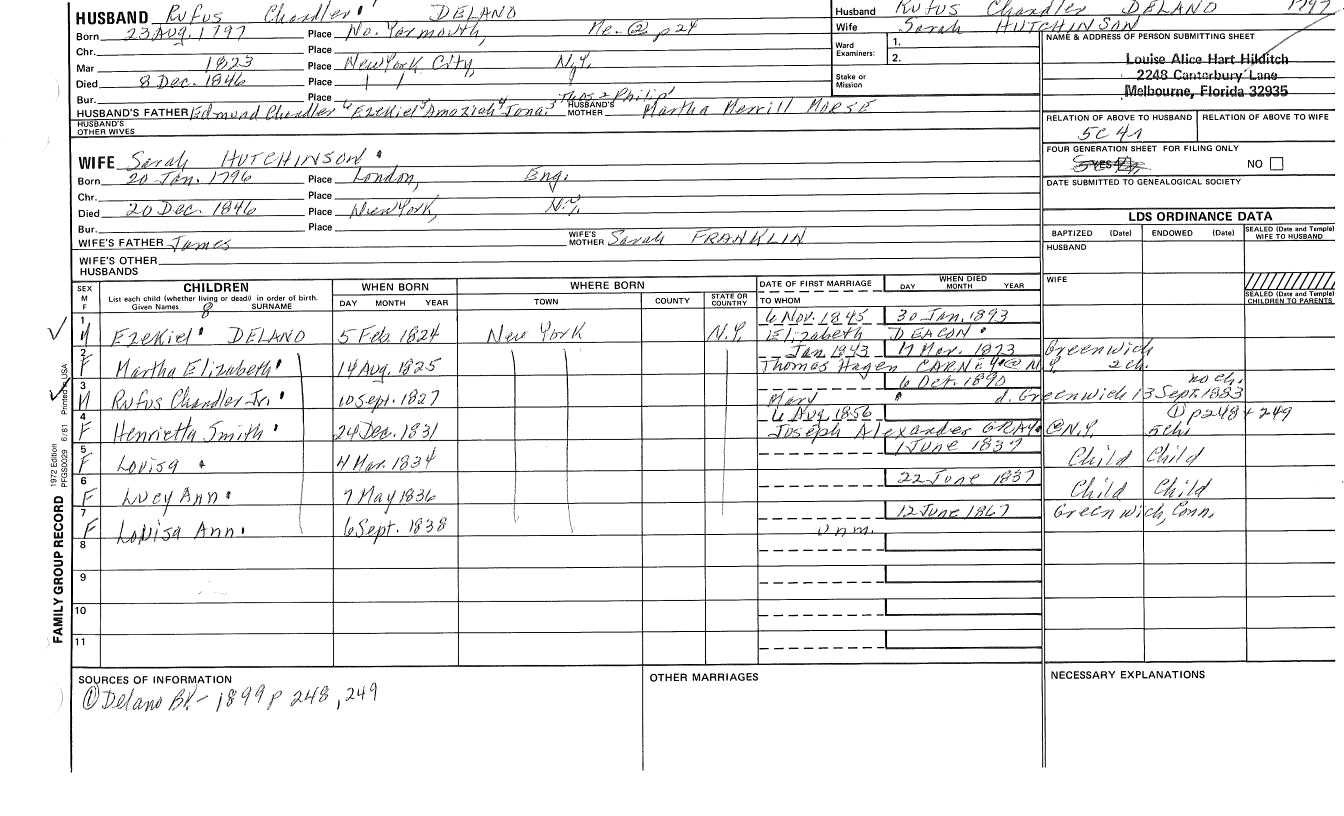 HUSBAND Rufus Chandler DELANO
Born 23 Aug. 1797 Place No. Yarmouth, Me. ② p24
Chr. Place
Mar 1823 Place New York City, N.Y.
Died 8 Dec. 1846 Place
Bur. Place
HUSBAND'S FATHER Edmund Chandler Ezekiel Amaziah Jona. Thos 2 Philip HUSBAND'S MOTHER Martha Merrill MORSE
HUSBAND'S OTHER WIVES
WIFE Sarah HUTCHINSON
Born 20 Jan. 1796 Place London, Eng.
Chr. Place
Died 20 Dec. 1846 Place New York, N.Y.
Bur. Place
WIFE'S FATHER James WIFE'S MOTHER Sarah FRANKLIN
WIFE'S OTHER HUSBANDS
Husband RUFUS Chandler DELANO 1797
Wife Sarah HUTCHINSON
Ward Examiners: 1.
2.
Stake or Mission
NAME & ADDRESS OF PERSON SUBMITTING SHEET
Louise Alice Hart Hilditch
2248 Canterbury Lane
Melbourne, Florida 32935
RELATION OF ABOVE TO HUSBAND RELATION OF ABOVE TO WIFE
5C 4r
FOUR GENERATION SHEET FOR FILING ONLY
YES NO
DATE SUBMITTED TO GENEALOGICAL SOCIETY
LDS ORDINANCE DATA
BAPTIZED (Date) ENDOWED (Date) SEALED (Date and Temple) WIFE TO HUSBAND
HUSBAND
WIFE
SEALED (Date and Temple) CHILDREN TO PARENTS
SEX M F CHILDREN WHEN BORN WHERE BORN DATE OF FIRST MARRIAGE WHEN DIED
List each child (whether living or dead) in order of birth.
Given Names 8 SURNAME DAY MONTH YEAR TOWN COUNTY STATE OR COUNTRY TO WHOM DAY MONTH YEAR
1 6 Nov. 1845 30 Jan. 1893
M Ezekiel DELANO 5 Feb. 1824 New York N.Y. Elizabeth DEACON
2 Jan 1843 17 Mar. 1873 Greenwich
F Martha Elizabeth 14 Aug. 1825 Thomas Hagen CARNEY @ N.Y. 2 ch.
3 6 Oct. 1890 no ch.
M Rufus Chandler Jr. 10 Sept. 1827 Mary d. Greenwich 13 Sept. 1883
4 6 Aug 1856 ① p248 + 249
F Henrietta Smith 24 Dec. 1831 Joseph Alexander GRAY @ N.Y. 5 ch.
5 1 June 1837
F Louisa 4 Mar. 1834 Child Child
6 22 June 1837
F Lucy Ann 7 May 1836 Child Child
7 12 June 1867 Greenwich, Conn.
F Louisa Ann 6 Sept. 1838 Unm.
8
9
10
11
SOURCES OF INFORMATION OTHER MARRIAGES NECESSARY EXPLANATIONS
① Delano Bk. - 1899 p 248, 249
FAMILY GROUP RECORD 1972 Edition PFGS0029 6/81 Printed in USA